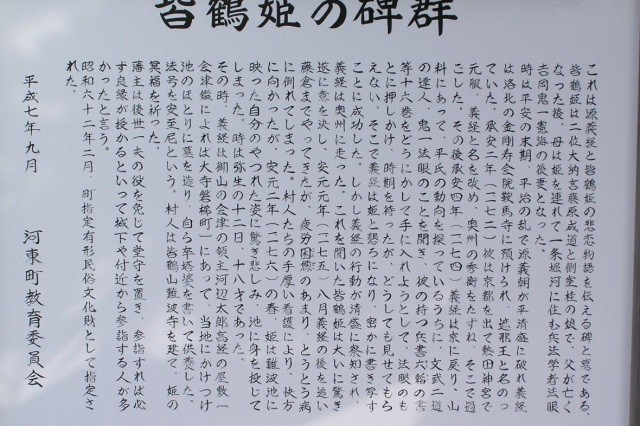 皆鶴姫の碑群
これは源義経と皆鶴姫の悲恋物語を伝える碑と墓である。
皆鶴姫は二位大納言藤原成道と側室桂の娘で、父が亡く
なった後、母は姫を連れて一条堀河に住む兵法学者法眼
吉岡鬼一憲海の後妻となった。
時は平安の末期、平治の乱で源義朝が平清盛に破れ義経
は洛北の金剛寿合院鞍馬寺に預けられ、遮那王と名のっ
ていた。承安二年(一一七二)彼は京都を出て熱田神宮で
元服、義経と名を改め、奥州の秀衡をたずね、そこで過
こした。その後承安四年(一一七四)義経は京に戻り、山
科にあって、平氏の動向を探っているうちに、文武二道
の達人、鬼一法眼のことを聞き、彼の持つ兵書六韜の書
等十六巻をどうにかして手に入れようとして、法眼のも
とに押しかけ、時期を待ったが、どうしても見せてもら
えない。そこで義経は姫と懇ろになり、密かに書き写す
ことに成功した。しかし義経の行動が清盛に察知され、
義経は奥州に走った。これを聞いた皆鶴姫は大いに驚き
遂に意を決し、安元元年(一一七五)八月義経の後を追い
藤倉までやってきたが、疲労困憊のあまり、とうとう病
に倒れてしまった。村人たちの手厚い看護により、快方
に向かったが、安元二年(一一七六)の春、姫は難波池に
映った自分のやつれた姿に驚き悲しみ、池に身を投じて
しまった。時は弥生の十二日、十八才であった。
その時、義経は御山の会津の領主河辺太郎高経の屋敷(
会津鑑によれば大寺磐梯町)にあって、当地にかけつけ
池のほとりに墓を造り、自ら卒塔婆を書いて供養した。
法号を安至尼という。村人は皆鶴山難波寺を建て、姫の
冥福を祈った。
藩主は後世一夫の役を免じて堂守を置き、参詣すれば必
ず良縁が授かるといって城下や付近から参詣する人が多
かったと言う。
昭和六十二年二月、町指定有形民俗文化財として指定さ
れた。
平成七年九月
河東町教育委員会